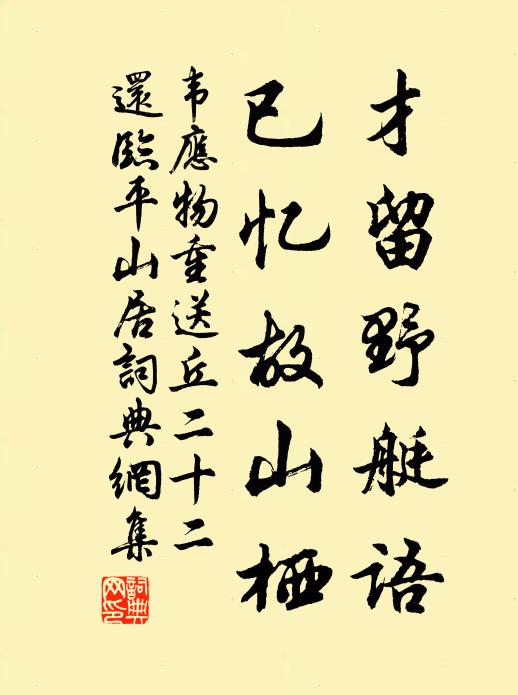 才留野艇语
已忆故山栖
韦應物重送丘二十二
還臨平山居詞典網集
詞典
网印